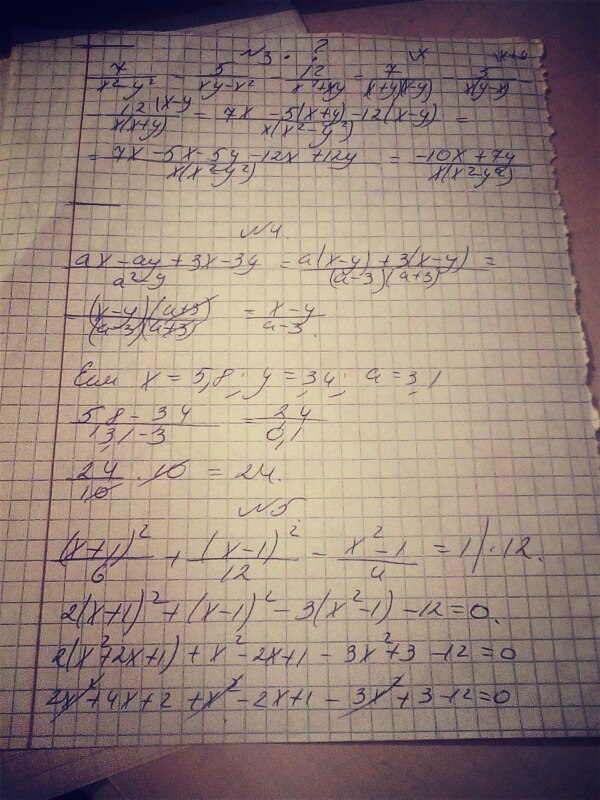 N3. ?
7/(x²-y²) - 5/(xy-x²) - 12/(x²+xy) = 7/((x+y)(x-y)) - 5/(x(y-x)) -
- 12(x-y)/(x(x+y)) = (7x - 5(x+y) - 12(x-y))/(x(x²-y²)) =
= (7x - 5x - 5y - 12x + 12y)/(x(x²-y²)) = (-10x + 7y)/(x(x²-y²))
N4.
(ax - ay + 3x - 3y)/(a²-9) = (a(x-y) + 3(x-y))/((a-3)(a+3)) =
= ((x-y)(a+3))/((a-3)(a+3)) = (x-y)/(a-3)
Если x = 5,8; y = 3,4; a = 3,1
(5,8 - 3,4)/(3,1 - 3) = 2,4/0,1
24/10 · 10 = 24.
N5.
(x+1)²/6 + (x-1)²/12 - (x²-1)/4 = 1 | · 12.
2(x+1)² + (x-1)² - 3(x²-1) - 12 = 0.
2(x²+2x+1) + x² - 2x + 1 - 3x² + 3 - 12 = 0
2x² + 4x + 2 + x² - 2x + 1 - 3x² + 3 - 12 = 0